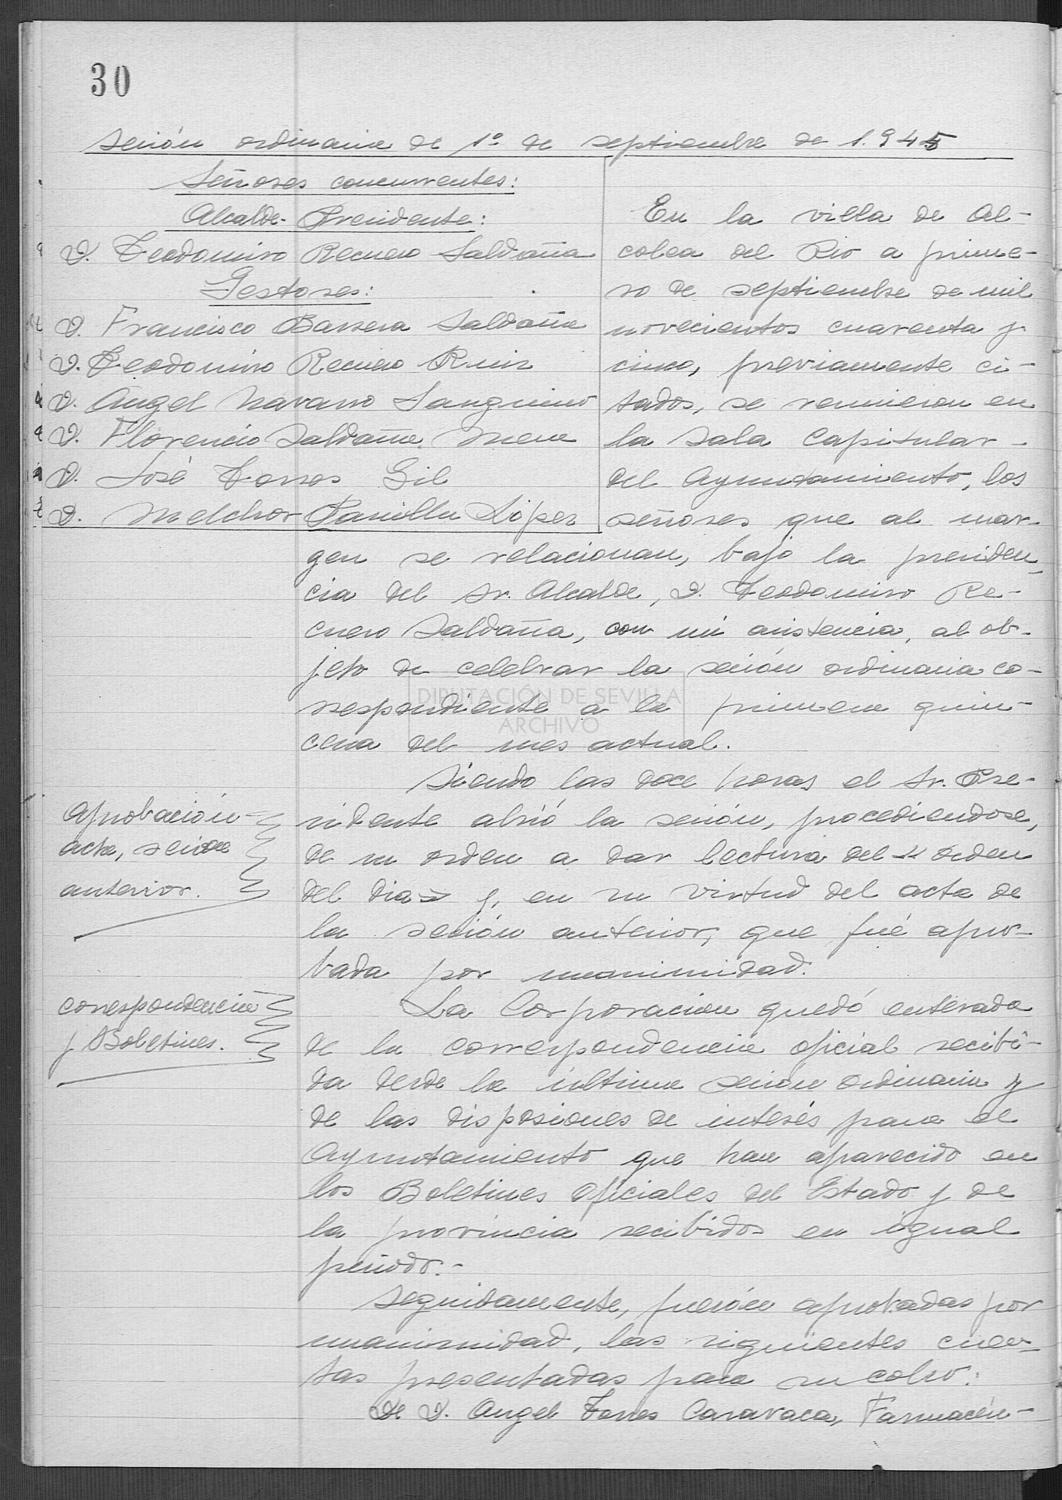 30
Sesión ordinaria de 1º de septiembre de 1.945
Señores concurrentes:
Alcalde-Presidente:
D. Teodomiro Recuero Saldaña
Gestores:
D. Francisco Barrera Saldaña
D. Teodomiro Recuero Ruiz
D. Angel Navarro Sanguino
D. Florencio Saldaña Mera
D. José Torres Gil
D. Melchor Parrilla López
En la villa de Al-
colea del Rio a prime-
ro de septiembre de mil
novecientos cuarenta y
cinco, previamente ci-
tados, se reunieron en
la Sala Capitular
del Ayuntamiento, los
señores que al mar-
gen se relacionan, bajo la presiden-
cia del Sr. Alcalde, D. Teodomiro Re-
cuero Saldaña, con mi asistencia, al ob-
jeto de celebrar la sesión ordinaria co-
rrespondiente a la primera quin-
cena del mes actual.
DIPUTACIÓN DE SEVILLA
ARCHIVO
Siendo las doce horas el Sr. Pre-
sidente abrió la sesión, procediendose,
de su orden a dar lectura del orden
del dia y, en su virtud del acta de
la sesión anterior, que fué apro-
bada por unanimidad.
Aprobación
acta, sesión
anterior.
La Corporacion quedó enterada
de la correspondencia oficial recibi-
da desde la última sesion ordinaria y
de las disposiones de interés para el
Ayuntamiento que han aparecido en
los Boletines Oficiales del Estado y de
la provincia recibidos en igual
período.-
Correspondencia
y Boletines.
Seguidamente, fuerón aprobadas por
unanimidad, las siguientes cuen-
tas presentadas para su cobro:
De D. Angel Torres Caravaca, Farmacéu-